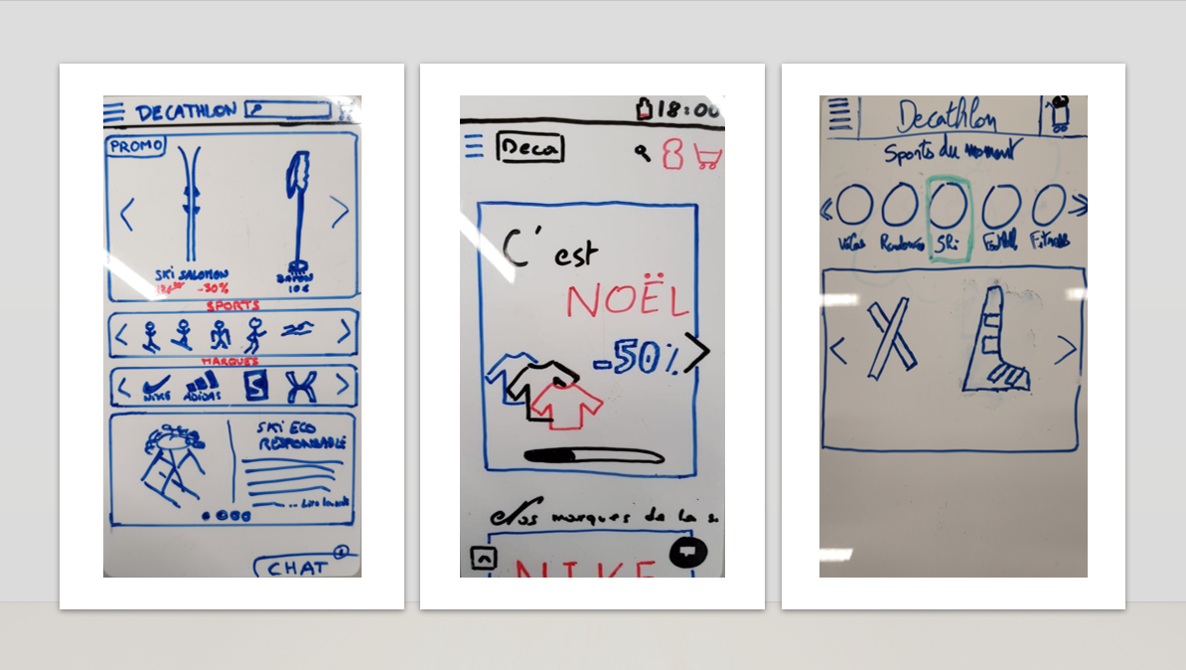 DECATHLON
PROMO
SKI SALOMON
-30%
BATON
10€
SPORTS
MARQUES
NIKE ADIDAS
S
SKI ECO
RESPONSABLE
... Lire la suite
CHAT
18:00
Deca
C'est
NOËL
-50%
Nos marques de la s
NIKE
Decathlon
Sports du moment
Vélos Randonnée Ski Football Fitness